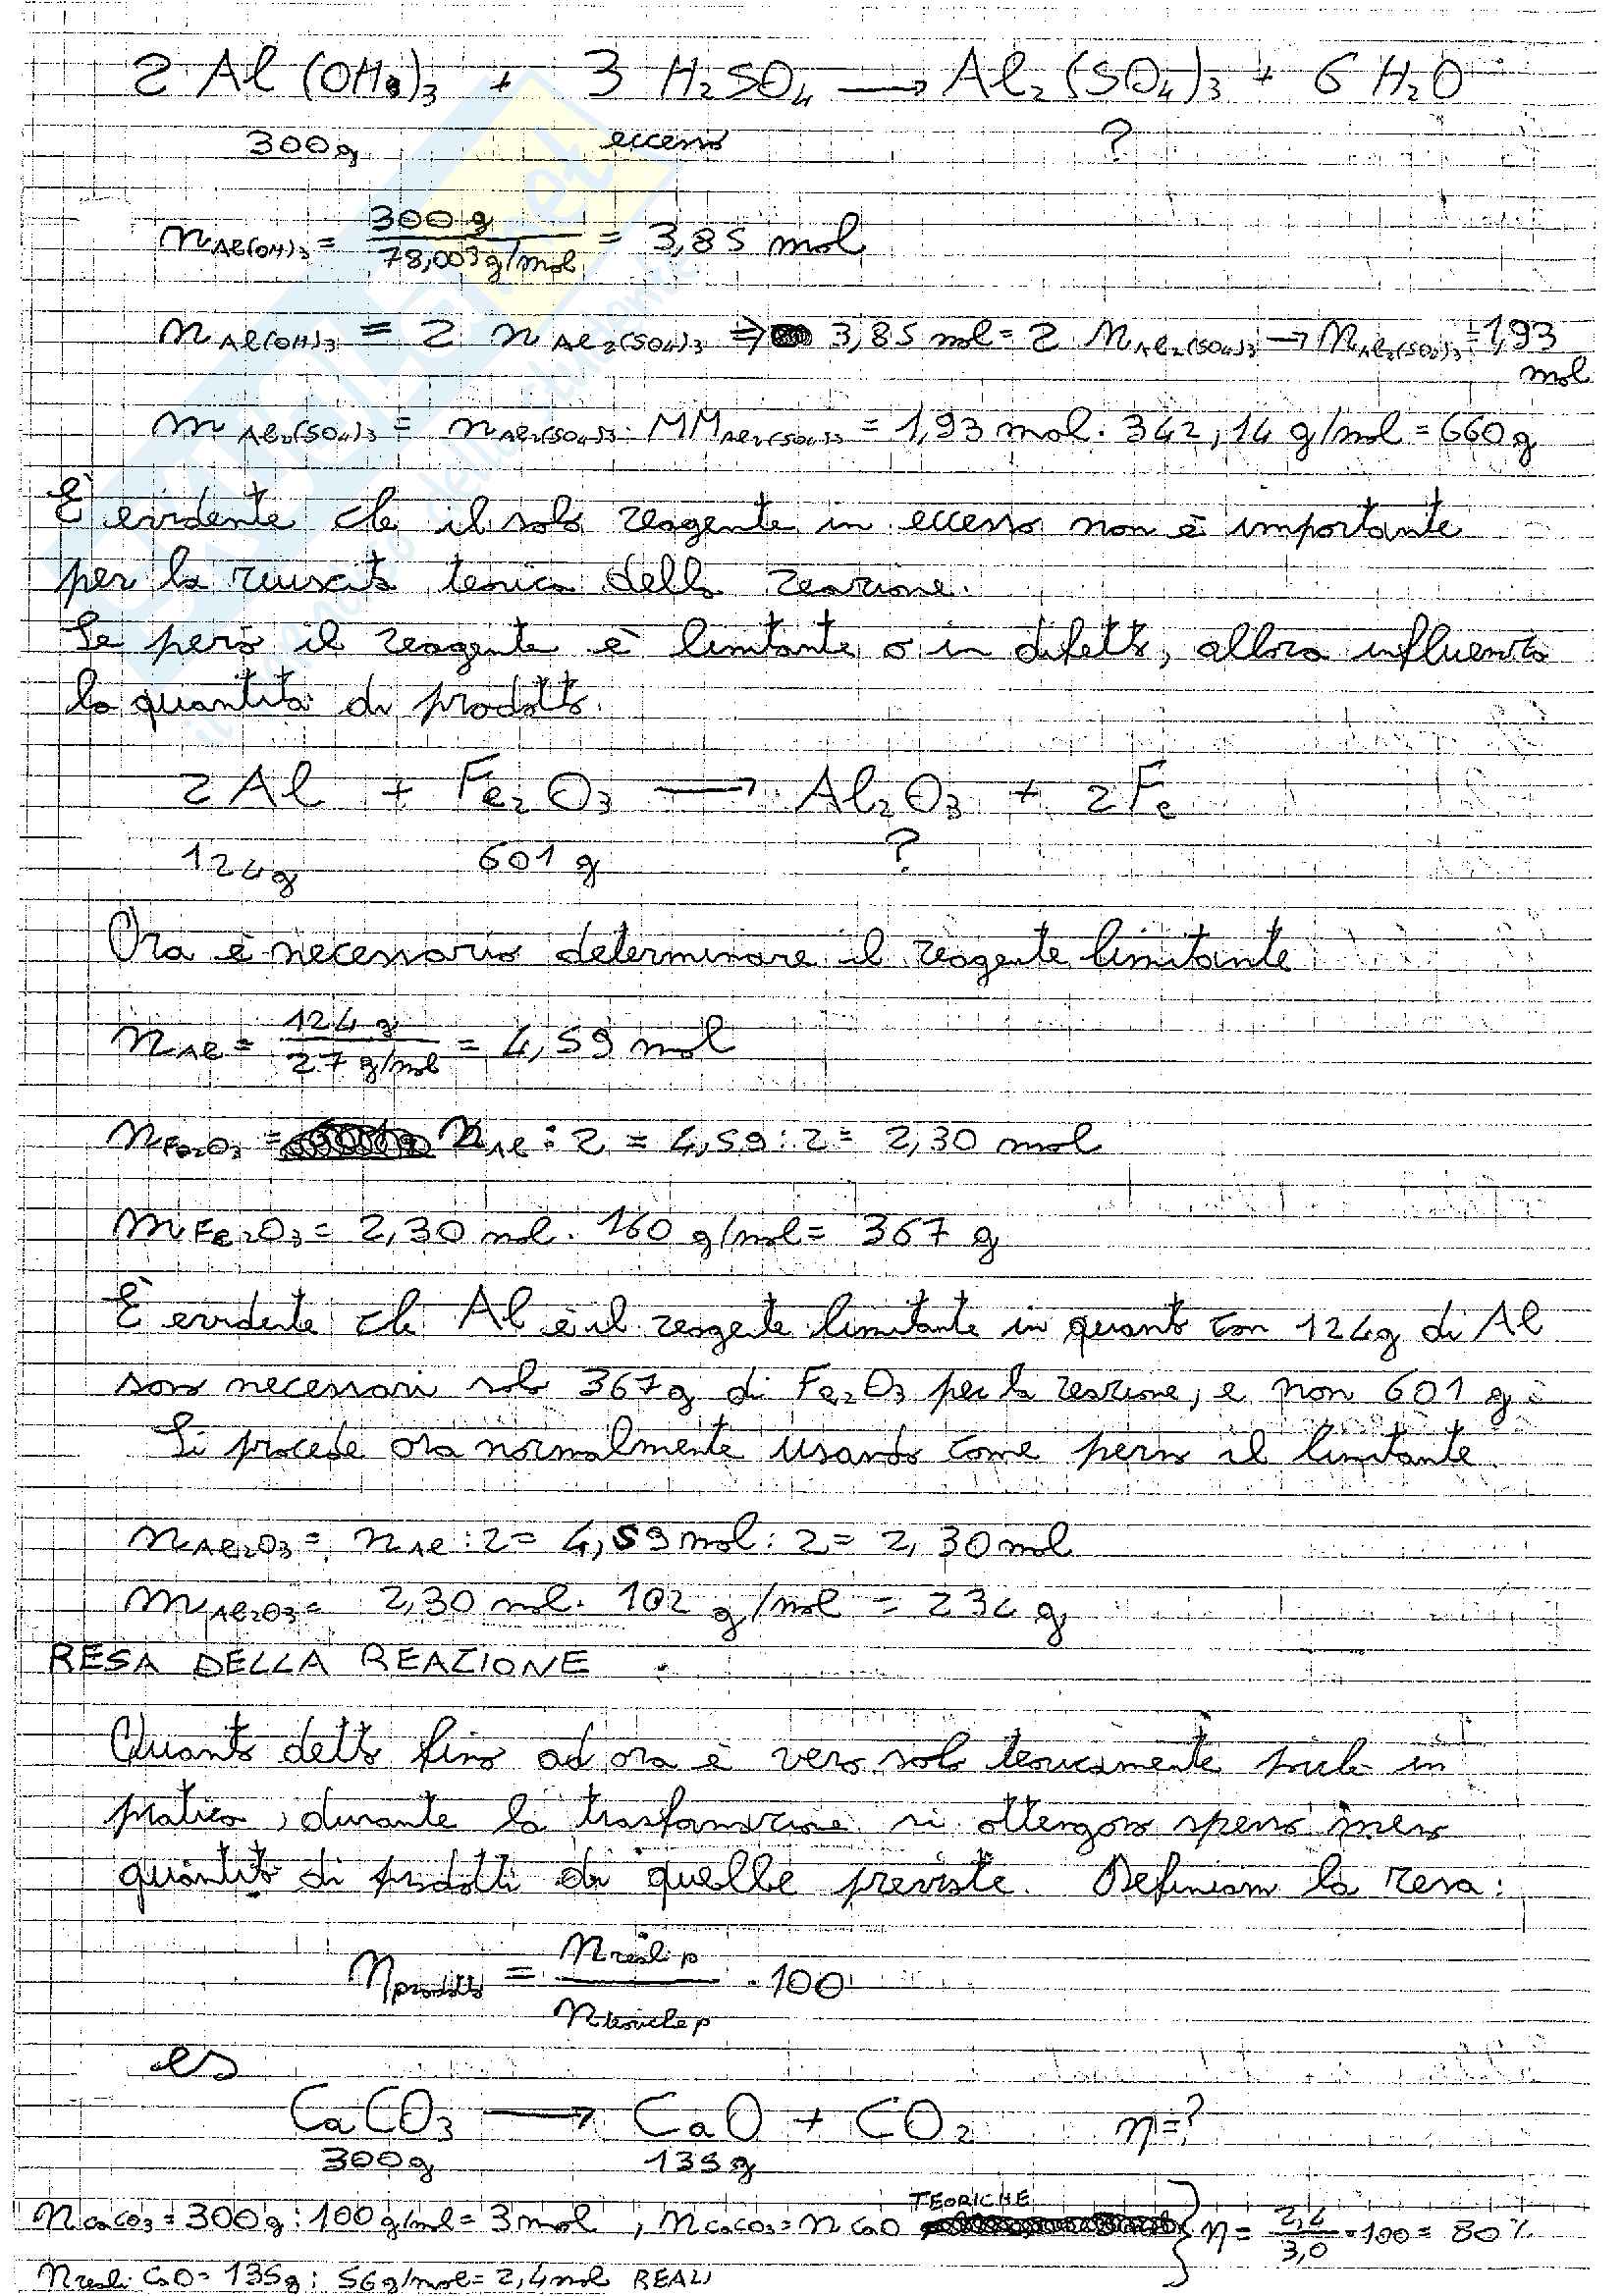 2 Al(OH)₃ + 3 H₂SO₄ → Al₂(SO₄)₃ + 6 H₂O
300g eccesso ?
n Al(OH)₃ = 300 g / 78,003 g/mol = 3,85 mol
n Al(OH)₃ = 2 n Al₂(SO₄)₃ ⇒ 3,85 mol = 2 n Al₂(SO₄)₃ → n Al₂(SO₄)₃ = 1,93
mol
m Al₂(SO₄)₃ = n Al₂(SO₄)₃ · MM Al₂(SO₄)₃ = 1,93 mol · 342,14 g/mol = 660 g
È evidente che il solo reagente in eccesso non è importante
per la riuscita teorica della reazione.
Se però il reagente è limitante o in difetto, allora influenza
la quantità di prodotto.
2 Al + Fe₂O₃ → Al₂O₃ + 2 Fe
124g 601 g ?
Ora è necessario determinare il reagente limitante
n Al = 124 g / 27 g/mol = 4,59 mol
n Fe₂O₃ = n Al : 2 = 4,59 : 2 = 2,30 mol
m Fe₂O₃ = 2,30 mol · 160 g/mol = 367 g
È evidente che Al è il reagente limitante in quanto con 124g di Al
sono necessari solo 367g di Fe₂O₃ per la reazione, e non 601 g.
Si procede ora normalmente usando come perno il limitante.
n Al₂O₃ = n Al : 2 = 4,59 mol : 2 = 2,30 mol
m Al₂O₃ = 2,30 mol · 102 g/mol = 234 g
RESA DELLA REAZIONE
Quanto detto fino ad ora è vero solo teoricamente poiché in
pratica, durante la trasformazione si ottengono spesso meno
quantità di prodotti di quelle previste. Definiam la resa:
η prodotto = n reali p / n teoriche p · 100
es
CaCO₃ → CaO + CO₂ η=?
300g 135g
n CaCO₃ = 300g : 100 g/mol = 3 mol , n CaCO₃ = n CaO TEORICHE } η = 2,4 / 3,0 · 100 = 80 %
n reali CaO = 135g : 56 g/mol = 2,4 mol REALI